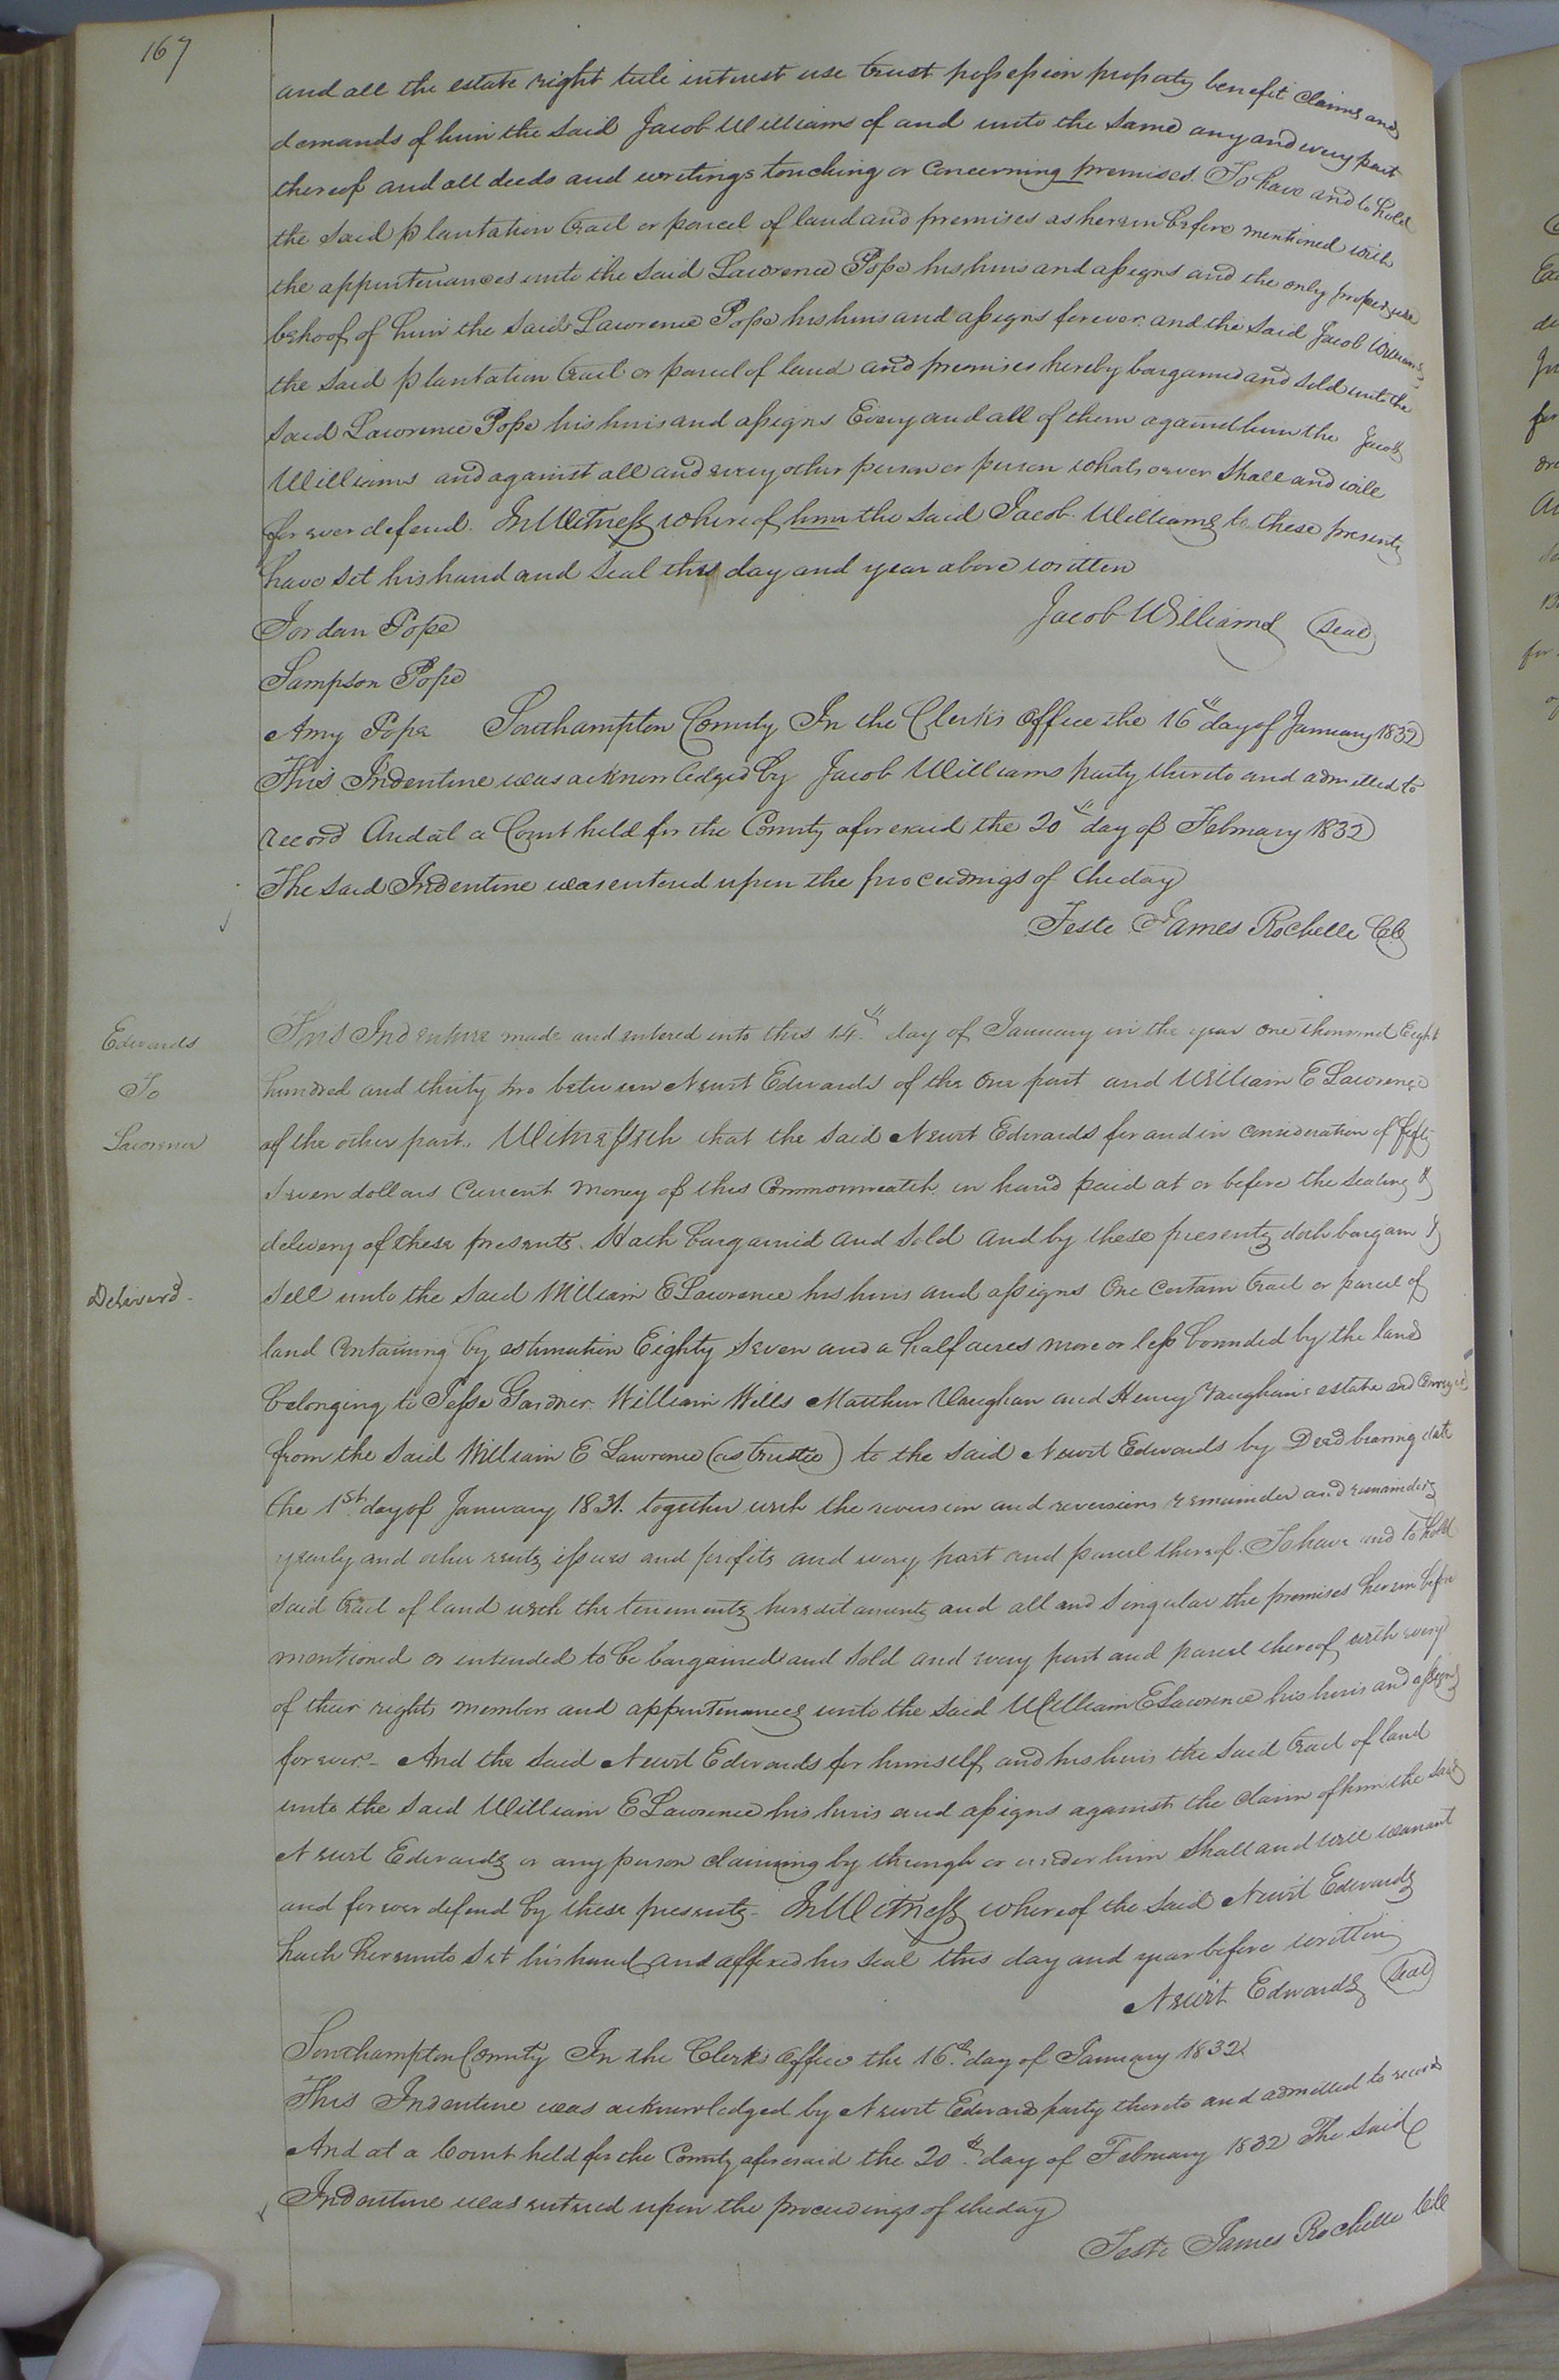 167
and all the estate right title interest use trust possession property benefit claims and
demands of him the said Jacob Williams of and unto the same any and every part
thereof and all deeds and writings touching or Concerning premises. To have and to hold
the said plantation tract or parcel of land and premises as herein before mentioned with
the appurtenances unto the said Lawrence Pope his heirs and assigns and the only proper use
behoof of him the said Lawrence Pope his heirs and assigns forever. and the said Jacob Williams
the said plantation tract or parcel of land and premises hereby bargained and sold unto the
said Lawrence Pope his heirs and assigns Every and all of them against him the Jacob
Williams and against all and every other person or person whatsoever Shall and will
for ever defend. In Witness whereof him the said Jacob Williams to these presents
have set his hand and seal this day and year above written
Jacob Williams Seal
Jordan Pope
Sampson Pope
Amy Pope Southampton County In the Clerks office the 16th day of January 1832
This Indenture was acknowledged by Jacob Williams party thereto and admitted to
record And at a Court held for the County aforesaid the 20th day of February 1832
The said Indenture was entered upon the proceedings of the day
Teste James Rochelle Clk
Edwards
To
Lawrence
Deliverd
This Indenture made and entered into this 14th day of January in the year one thousand Eight
hundred and thirty two between Newit Edwards of the one part and William E Lawrence
of the other part. Witnesseth that the said Newit Edwards for and in consideration of fifty
seven dollars Current money of this Commonwealth in hand paid at or before the sealing &
delivery of these presents. Hath bargained and sold and by these presents doth bargain &
sell unto the said William E Lawrence his heirs and assigns One Certain tract or parcel of
land Containing by estimation Eighty Seven and a half acres more or less bounded by the land
belonging to Jesse Gardner. William Wills Matthew Vaughan and Henry Vaughan's estate and Conveyed
from the said William E Lawrence (as trustee) to the said Newit Edwards by Deed bearing date
the 1st day of January 1831. together with the reversion and reversions remainder and remainders
yearly and other rents issues and profits and every part and parcel thereof. To have and to hold
said tract of land with the tenements hereditaments and all and singular the premises herein before
mentioned or intended to be bargained and sold and every part and parcel thereof with every
of their rights members and appurtenances unto the said William E Lawrence his heirs and assigns
forever. And the said Newit Edwards for himself and his heirs the said tract of land
unto the said William E Lawrence his heirs and assigns against the claim of him the said
Newit Edwards or any person claiming by through or under him Shall and will warrant
and forever defend by these presents. In Witness whereof the said Newit Edwards
hath hereunto set his hand and affixed his seal this day and year before written
Newit Edwards Seal
Southampton County In the Clerk's Office the 16th day of January 1832
This Indenture was acknowledged by Newit Edwards party thereto and admitted to record
And at a Court held for the County aforesaid the 20th day of February 1832 The said
Indenture was entered upon the proceedings of the day
Teste James Rochelle Clk